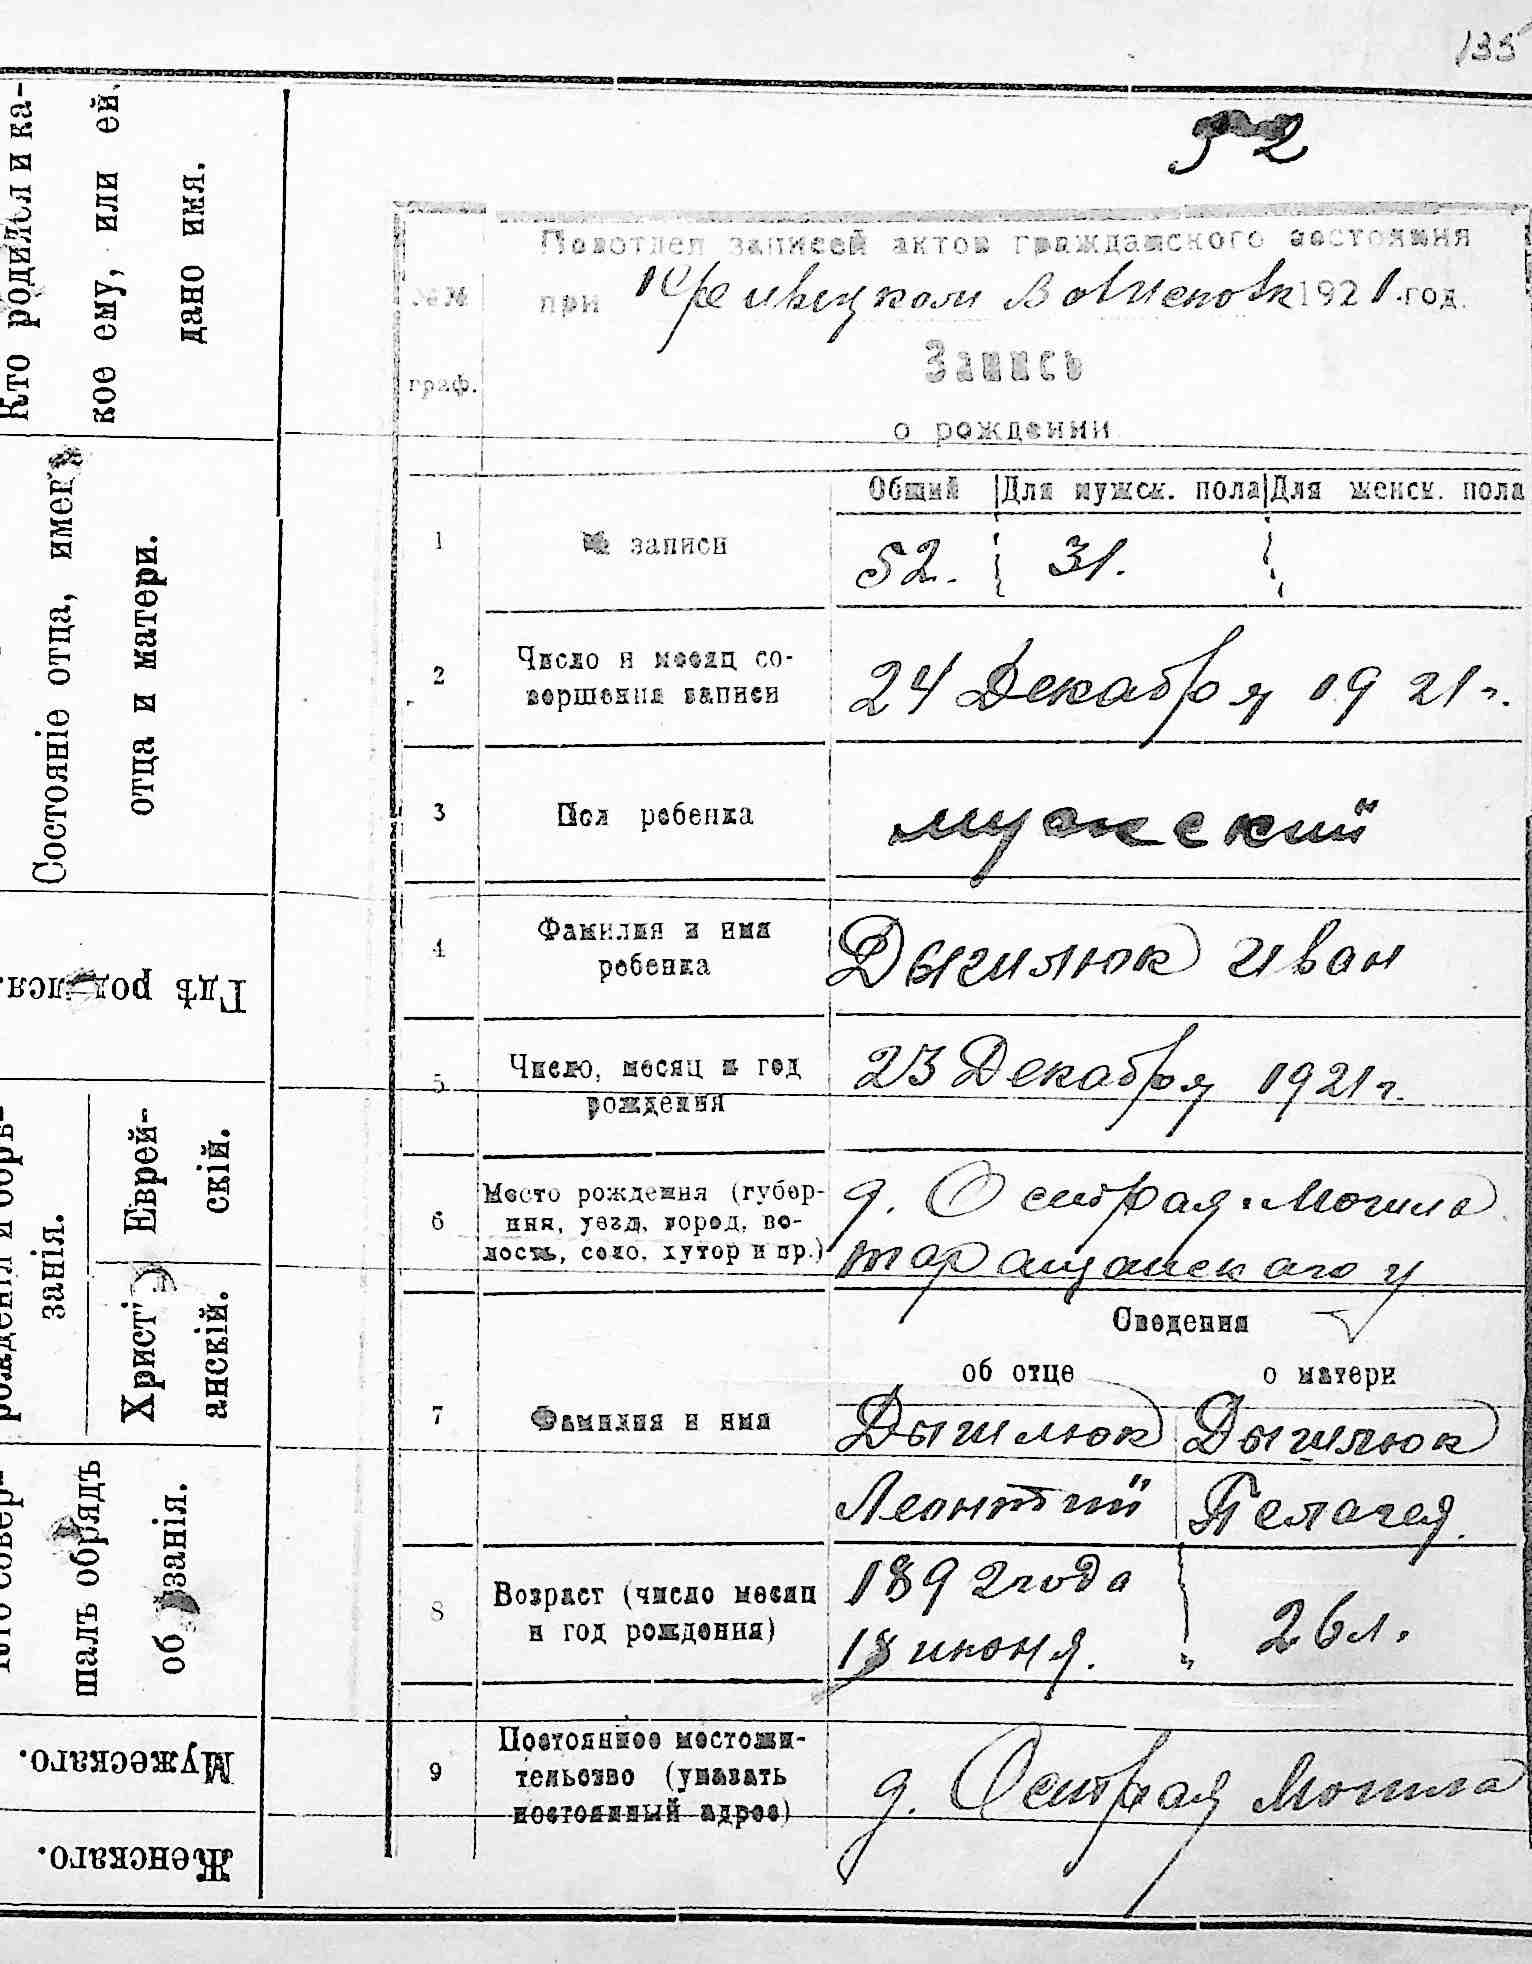 135
52
Кто родился и ка-
кое ему, или ей,
дано имя.
Состоянiе отца, имена
отца и матери.
Гдѣ родился.
рожденiя и обрѣ-
занiя.
Еврей-
скiй.
Христi-
анскiй.
Кто совер-
шалъ обрядъ
обрѣзанiя.
Мужескаго.
Женскаго.
№№
граф.
Подотдел записей актов гражданского состояния
при 1921 год.
Запись
о рождении
Общий Для мужск. пола Для женск. пола
1 № записи 52. 31.
2 Число и месяц со-
вершения записи
24 Декабря 1921 г.
3 Пол ребенка мужский
4 Фамилия и имя
ребенка
Дышлюк Иван
5 Число, месяц и год
рождения
23 Декабря 1921 г.
6 Место рождения (губер-
ния, уезд, город, во-
лость, село, хутор и пр.)
д. Острая-Могила
таращанскаго у
Сведения
об отце о матери
7 Фамилия и имя Дышлюк Дышлюк
Леонтий Пелагея.
8 Возраст (число месяц
и год рождения)
1892 года
18 июня. 26 л.
9 Постоянное местожи-
тельство (указать
постоянный адрес)
д. Острая Могила